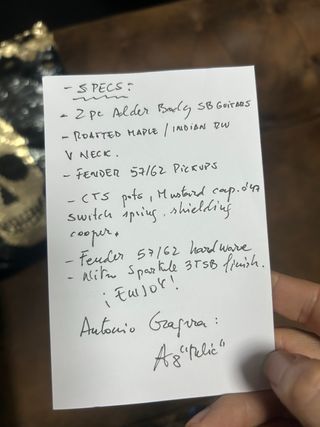 - SPECS:
- 2 pc Alder Body SB GUITARS
- ROASTED MAPLE / INDIAN RW
V NECK.
- FENDER 57/62 PICKUPS
- CTS pots, Mustard cap. 0'47
switch spring, shielding
cooper.
- Fender 57/62 hardware
- Nitro Sparkle 3TSB finish.
¡ENJOY!
Antonio
"Relic"